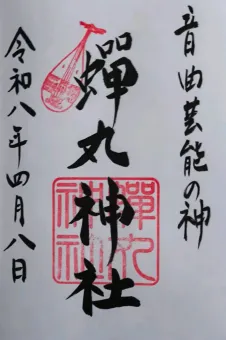 音曲芸能の神
蟬丸神社
令和八年四月八日
蟬丸神社